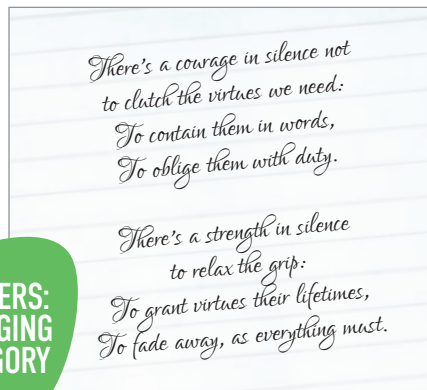 There's a courage in silence not
to clutch the virtues we need:
To contain them in words,
To oblige them with duty.
There's a strength in silence
to relax the grip:
To grant virtues their lifetimes,
To fade away, as everything must.
ERS:
GING
GORY